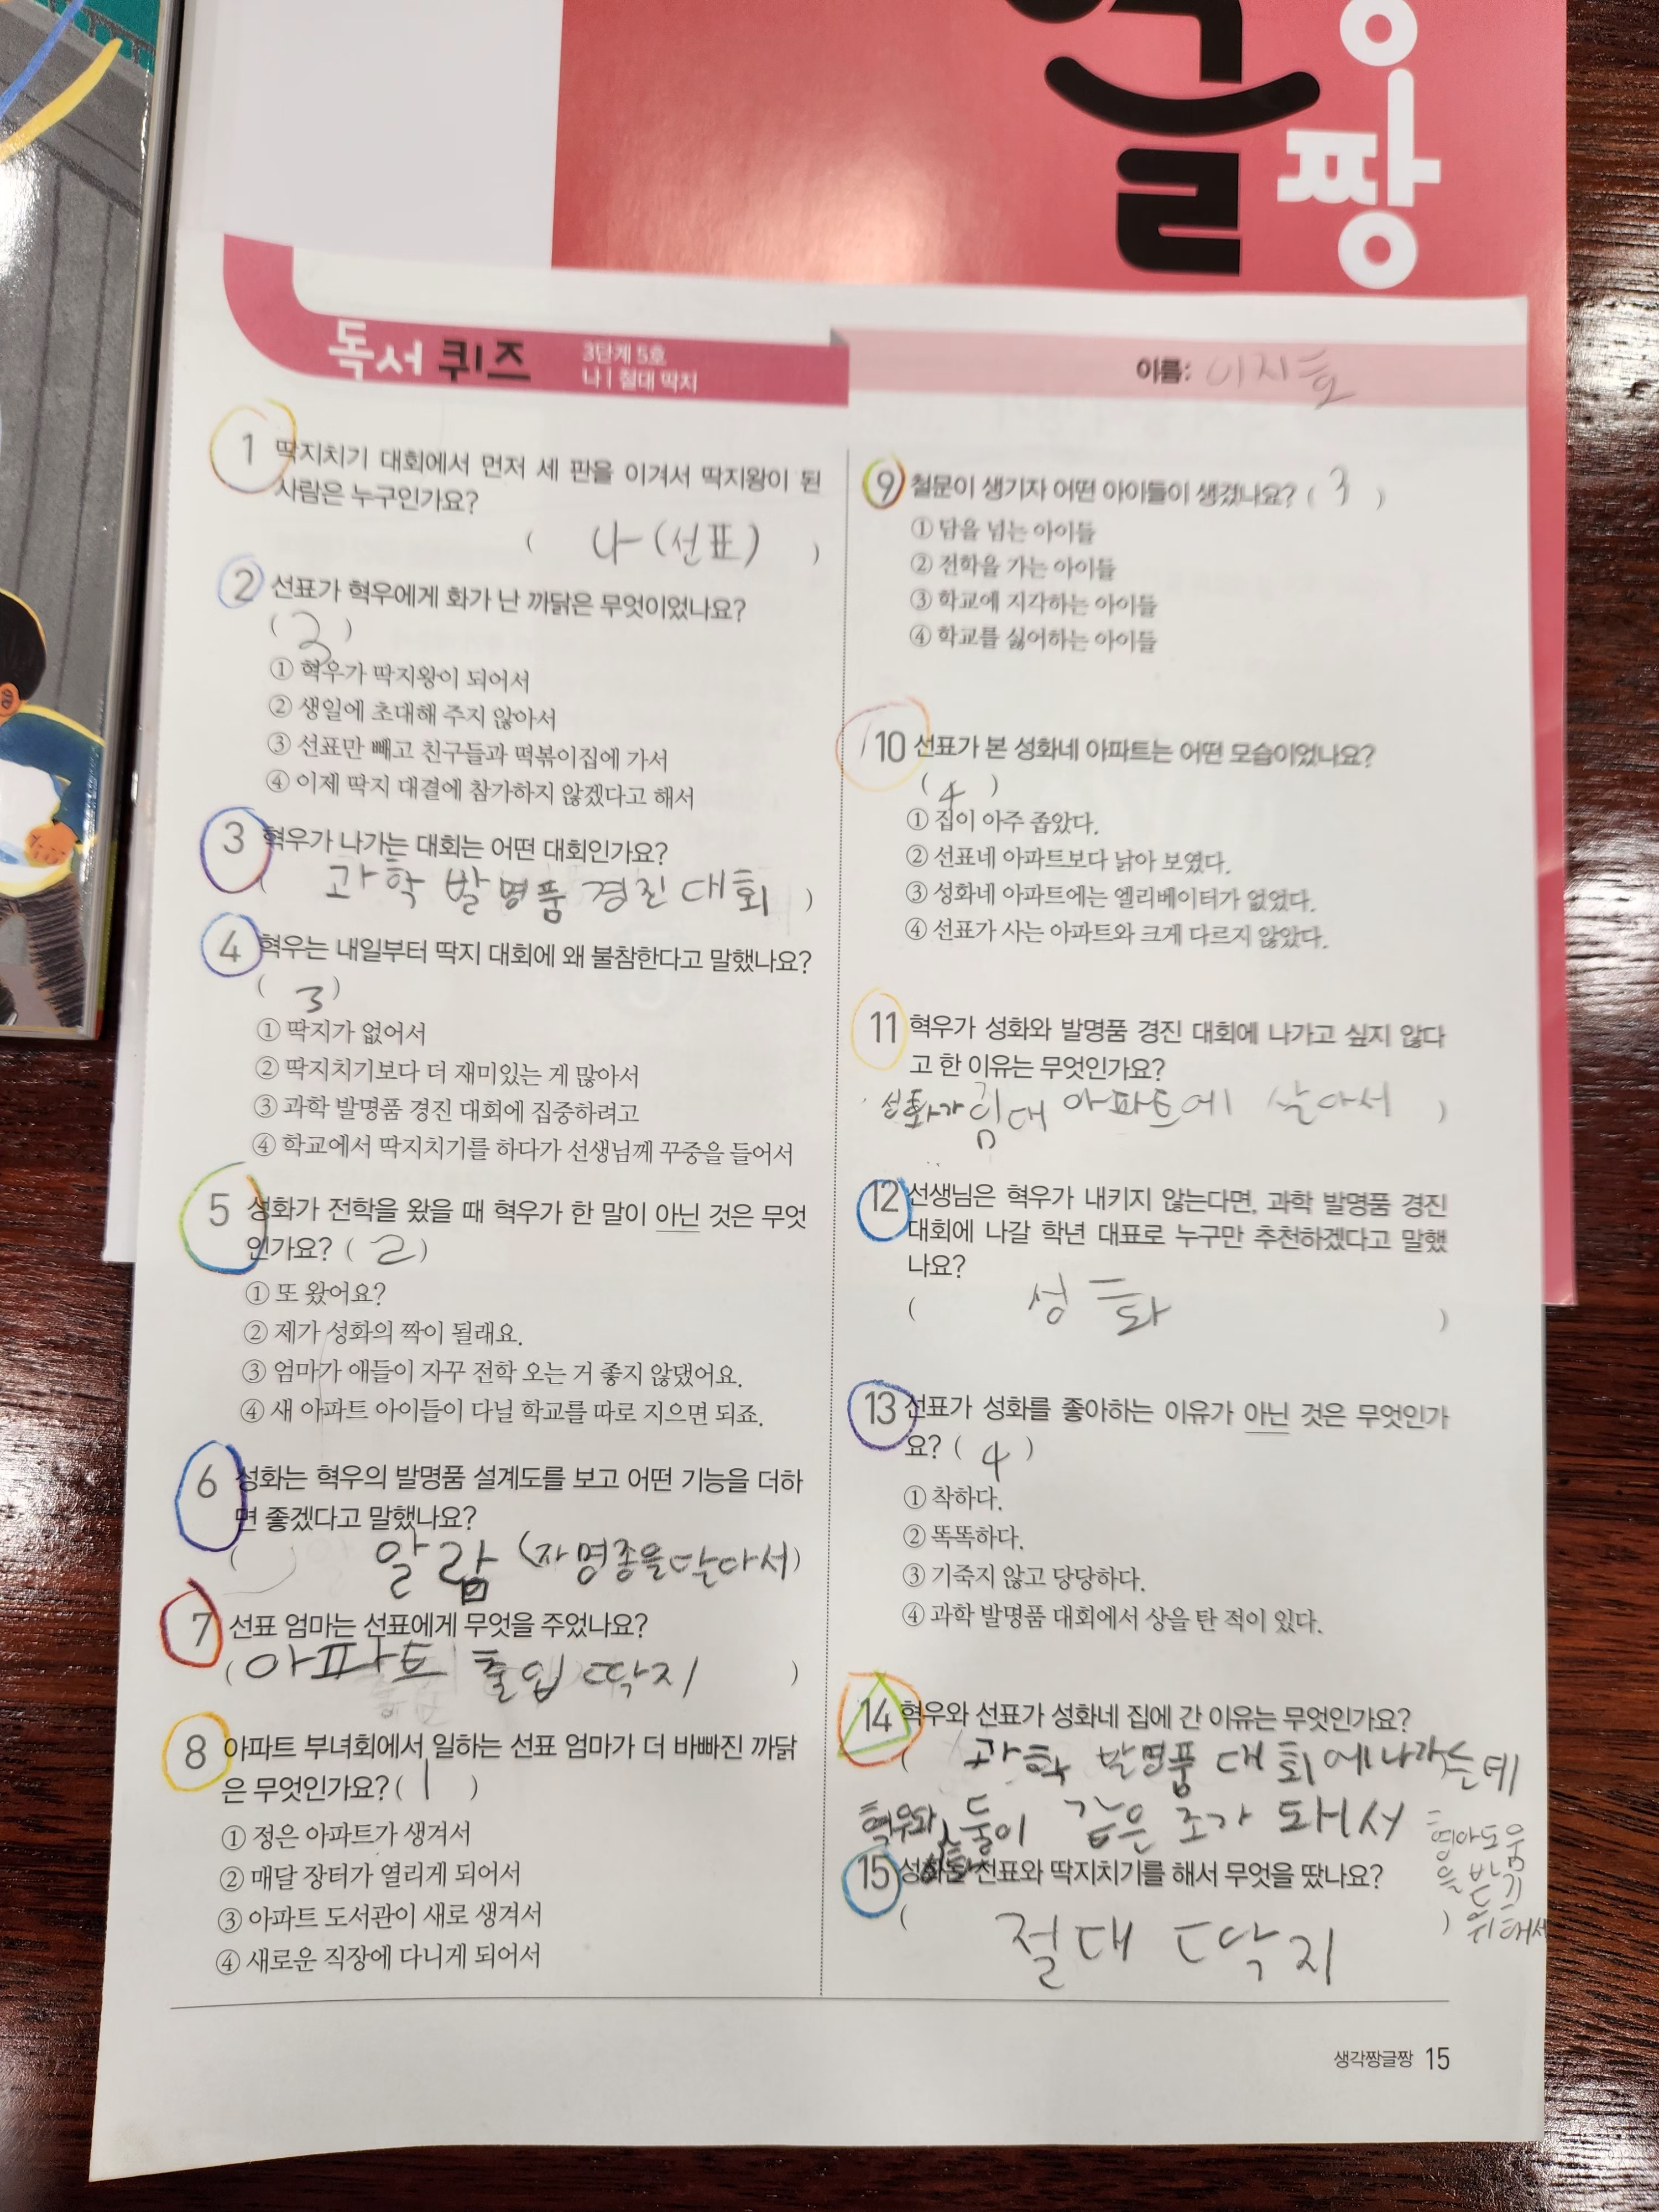 글짱
독서 퀴즈
3단계 5호
나 | 절대 딱지
이름: 이지호
1 딱지치기 대회에서 먼저 세 판을 이겨서 딱지왕이 된
사람은 누구인가요?
( 나(선표) )
2 선표가 혁우에게 화가 난 까닭은 무엇이었나요?
( 2 )
① 혁우가 딱지왕이 되어서
② 생일에 초대해 주지 않아서
③ 선표만 빼고 친구들과 떡볶이집에 가서
④ 이제 딱지 대결에 참가하지 않겠다고 해서
3 혁우가 나가는 대회는 어떤 대회인가요?
( 과학 발명품 경진 대회 )
4 혁우는 내일부터 딱지 대회에 왜 불참한다고 말했나요?
( 3 )
① 딱지가 없어서
② 딱지치기보다 더 재미있는 게 많아서
③ 과학 발명품 경진 대회에 집중하려고
④ 학교에서 딱지치기를 하다가 선생님께 꾸중을 들어서
5 성화가 전학을 왔을 때 혁우가 한 말이 아닌 것은 무엇
인가요? ( 2 )
① 또 왔어요?
② 제가 성화의 짝이 될래요.
③ 엄마가 애들이 자꾸 전학 오는 거 좋지 않댔어요.
④ 새 아파트 아이들이 다닐 학교를 따로 지으면 되죠.
6 성화는 혁우의 발명품 설계도를 보고 어떤 기능을 더하
면 좋겠다고 말했나요?
( 알람 (자명종을달아서)
7 선표 엄마는 선표에게 무엇을 주었나요?
( 아파트 출입 딱지 )
8 아파트 부녀회에서 일하는 선표 엄마가 더 바빠진 까닭
은 무엇인가요? ( 1 )
① 정은 아파트가 생겨서
② 매달 장터가 열리게 되어서
③ 아파트 도서관이 새로 생겨서
④ 새로운 직장에 다니게 되어서
9 철문이 생기자 어떤 아이들이 생겼나요? ( 3 )
① 담을 넘는 아이들
② 전학을 가는 아이들
③ 학교에 지각하는 아이들
④ 학교를 싫어하는 아이들
10 선표가 본 성화네 아파트는 어떤 모습이었나요?
( 4 )
① 집이 아주 좁았다.
② 선표네 아파트보다 낡아 보였다.
③ 성화네 아파트에는 엘리베이터가 없었다.
④ 선표가 사는 아파트와 크게 다르지 않았다.
11 혁우가 성화와 발명품 경진 대회에 나가고 싶지 않다
고 한 이유는 무엇인가요?
성화가 임대 아파트에 살아서 )
12 선생님은 혁우가 내키지 않는다면, 과학 발명품 경진
대회에 나갈 학년 대표로 누구만 추천하겠다고 말했
나요?
( 성화 )
13 선표가 성화를 좋아하는 이유가 아닌 것은 무엇인가
요? ( 4 )
① 착하다.
② 똑똑하다.
③ 기죽지 않고 당당하다.
④ 과학 발명품 대회에서 상을 탄 적이 있다.
14 혁우와 선표가 성화네 집에 간 이유는 무엇인가요?
( 과학 발명품 대회에나가는데
혁우와 둘이 같은 조가 돼서
도움
을 받기
위해서
15 성화는 선표와 딱지치기를 해서 무엇을 땄나요?
( 절대 딱지 )
생각짱글짱 15